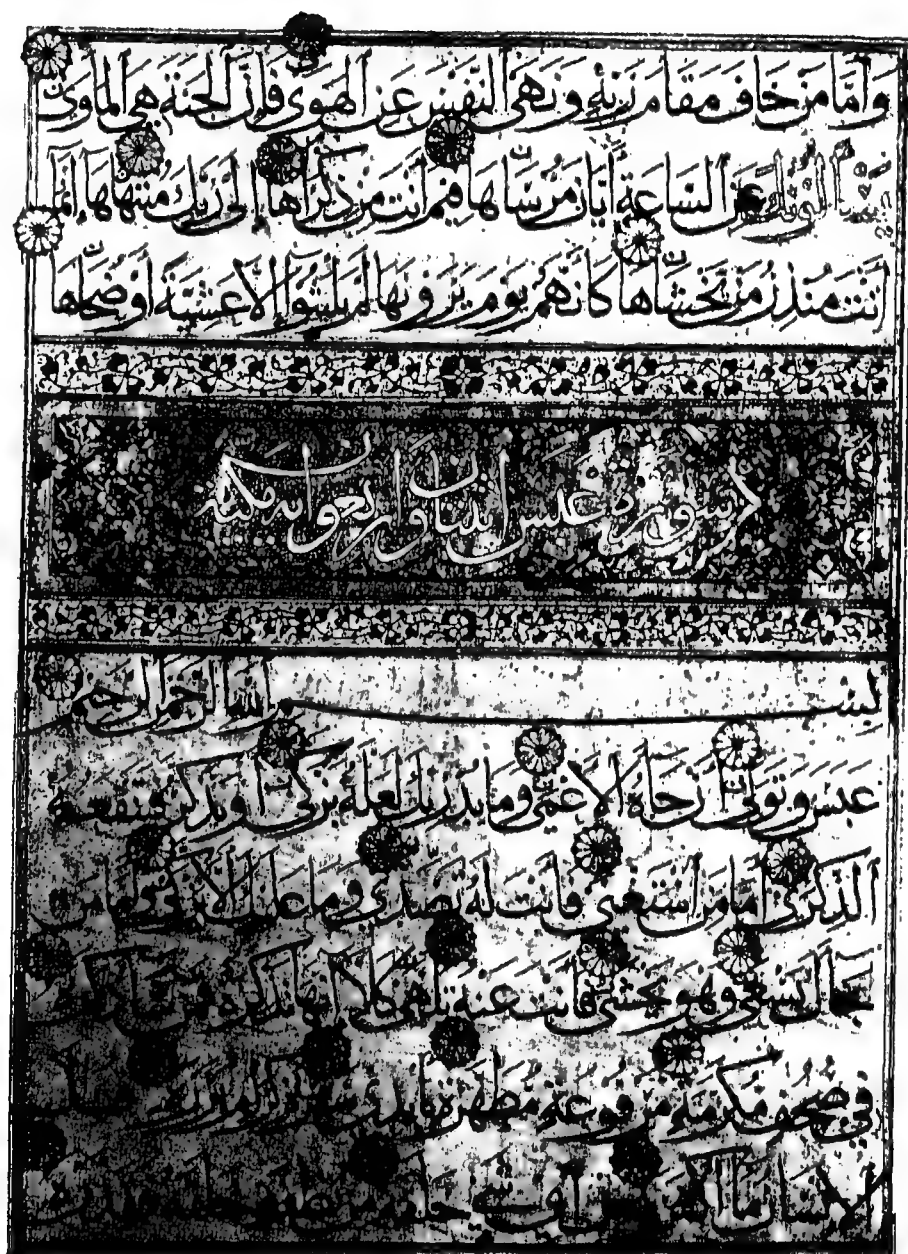 وَأَمَّا مَنْ خَافَ مَقَامَ رَبِّهِ وَنَهَى النَّفْسَ عَنِ الْهَوَى فَإِنَّ الْجَنَّةَ هِيَ الْمَأْوَى
عَنِ السَّاعَةِ أَيَّانَ مُرْسَاهَا فِيمَ أَنْتَ مِنْ ذِكْرَاهَا إِلَى رَبِّكَ مُنْتَهَاهَا إِنَّمَا
أَنْتَ مُنْذِرُ مَنْ يَخْشَاهَا كَأَنَّهُمْ يَوْمَ يَرَوْنَهَا لَمْ يَلْبَثُوا إِلَّا عَشِيَّةً أَوْ ضُحَاهَا
سورة عبس اثنتان واربعون اية مكية
بسم الله الرحمن الرحيم
عَبَسَ وَتَوَلَّى أَنْ جَاءَهُ الْأَعْمَى وَمَا يُدْرِيكَ لَعَلَّهُ يَزَّكَّى أَوْ يَذَّكَّرُ فَتَنْفَعَهُ
الذِّكْرَى أَمَّا مَنِ اسْتَغْنَى فَأَنْتَ لَهُ تَصَدَّى وَمَا عَلَيْكَ أَلَّا يَزَّكَّى وَأَمَّا مَنْ
جَاءَكَ يَسْعَى وَهُوَ يَخْشَى فَأَنْتَ عَنْهُ تَلَهَّى كَلَّا إِنَّهَا تَذْكِرَةٌ فَمَنْ شَاءَ ذَكَرَهُ
فِي صُحُفٍ مُكَرَّمَةٍ مَرْفُوعَةٍ مُطَهَّرَةٍ بِأَيْدِي كِرَامٍ بَرَرَةٍ
الْإِنْسَانُ مَا أَكْفَرَهُ أَيِّ شَيْءٍ خَلَقَهُ